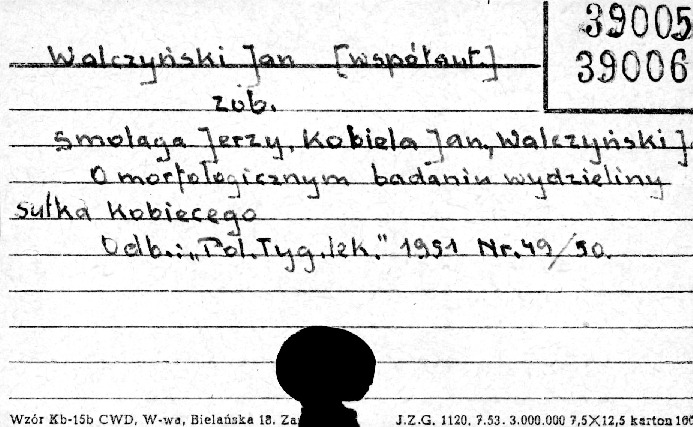 39005
39006
Walczyński Jan [współaut.]
zob.
Smołaga Jerzy, Kobiela Jan, Walczyński J.
O morfologicznym badaniu wydzieliny
sutka kobiecego
Odb.: „Pol. Tyg. lek." 1951 Nr. 49/50.
Wzór Kb-15b CWD, W-wa, Bielańska 18. J.Z.G. 1120. 7.53. 3.000.000 7,5×12,5 karton